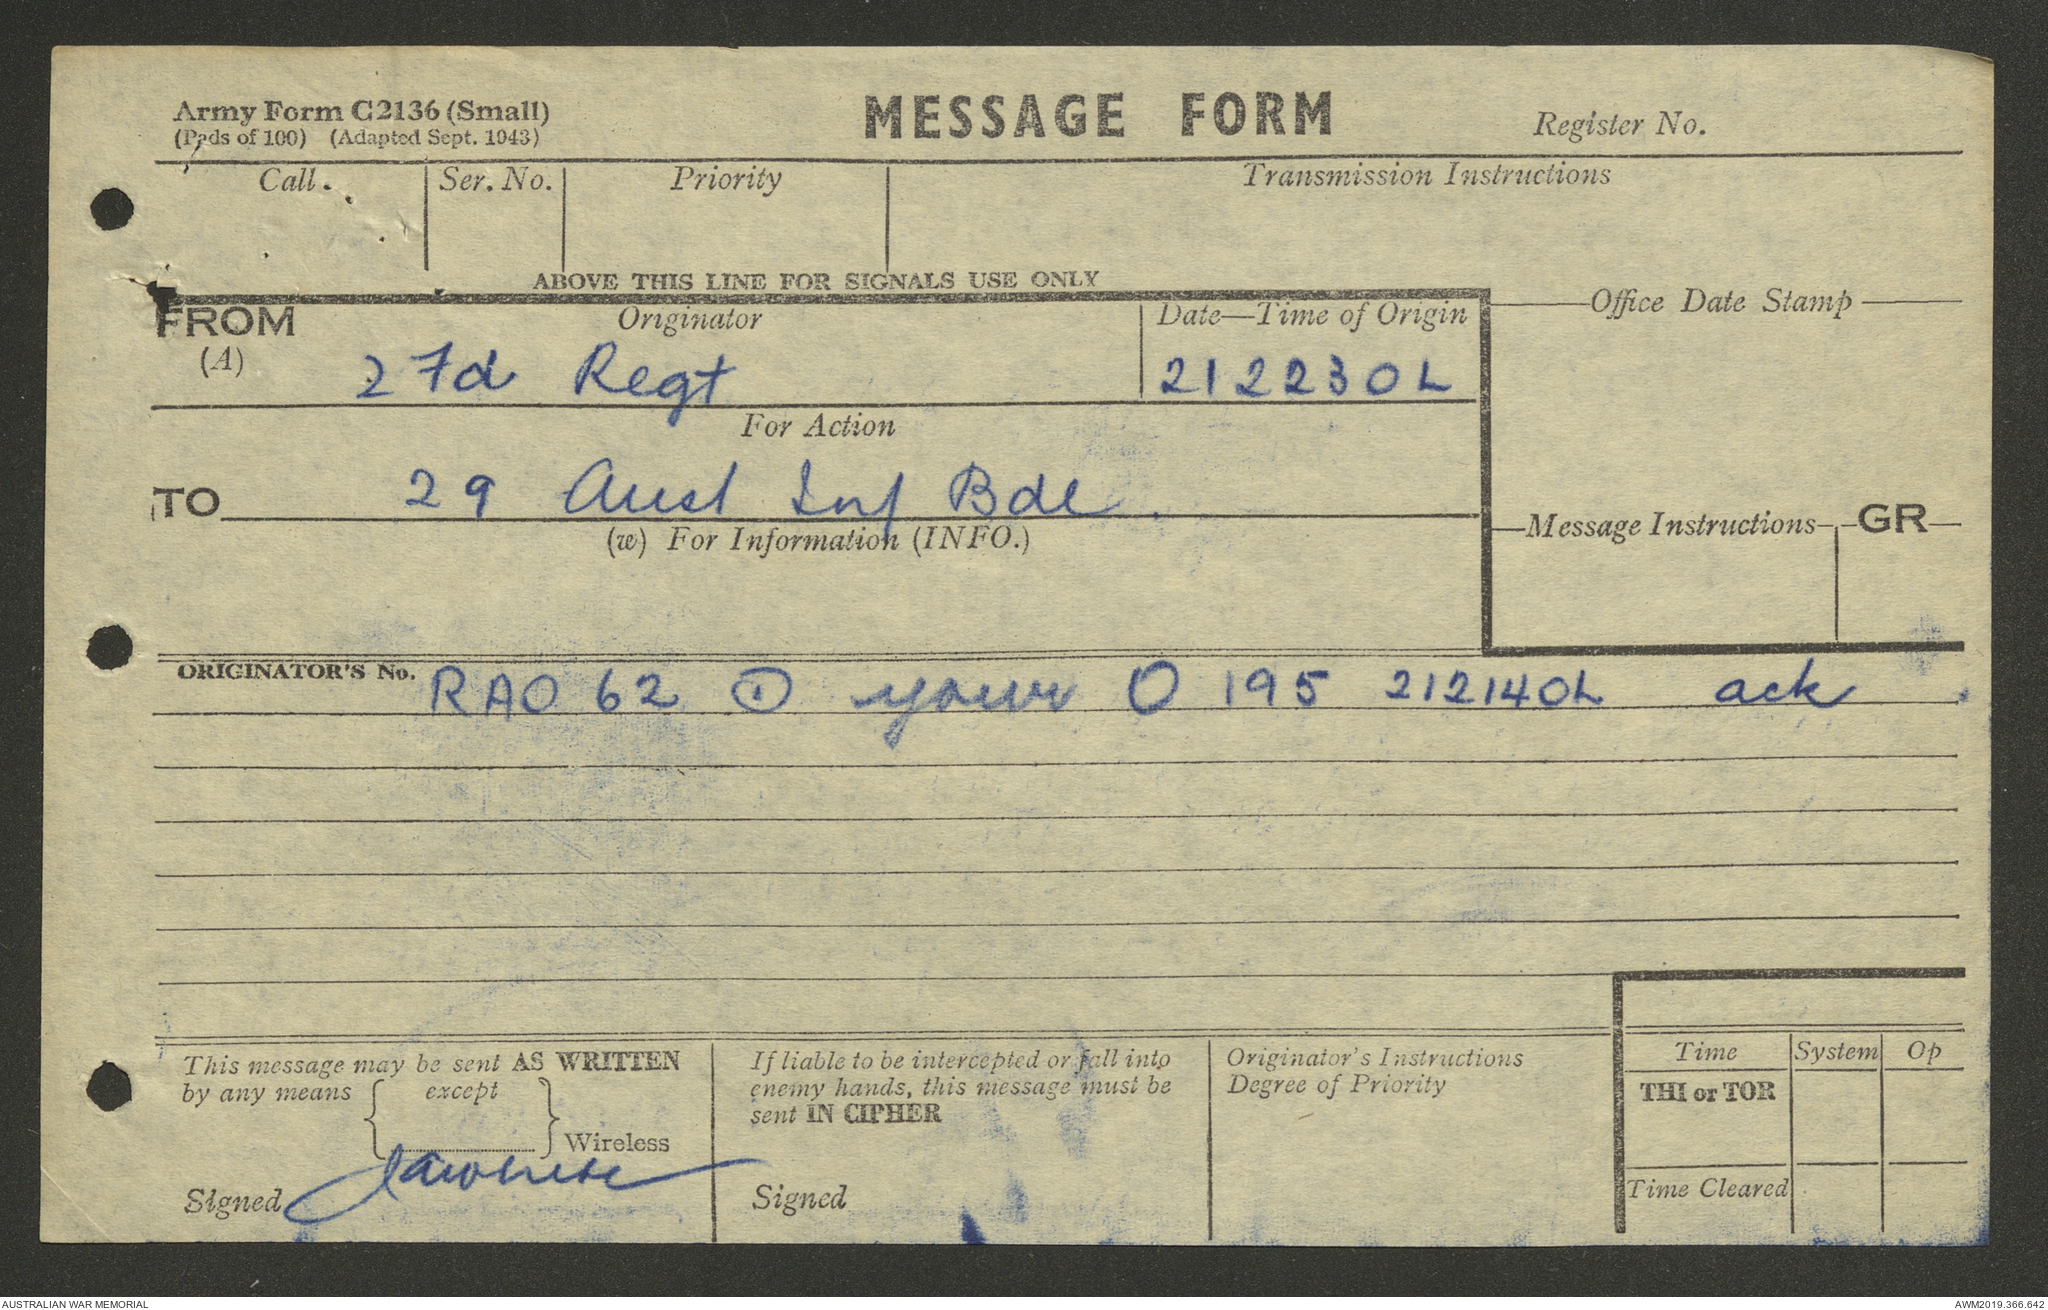 Army Form C2136 (Small)
(Pads of 100) (Adapted Sept. 1943)
MESSAGE FORM
Register No.
Call. Ser. No. Priority Transmission Instructions
ABOVE THIS LINE FOR SIGNALS USE ONLY
FROM Originator Date—Time of Origin Office Date Stamp
(A) 2 Fd Regt 212230L
For Action
TO 29 Aust Inf Bde
(w) For Information (INFO.) Message Instructions GR
ORIGINATOR'S No. RAO 62 ⊙ your O 195 212140L ack .
This message may be sent AS WRITTEN
by any means { except } Wireless
Signed
If liable to be intercepted or fall into
enemy hands, this message must be
sent IN CIPHER
Signed
Originator's Instructions
Degree of Priority
Time System Op
THI or TOR
Time Cleared
AUSTRALIAN WAR MEMORIAL
AWM2019.366.642